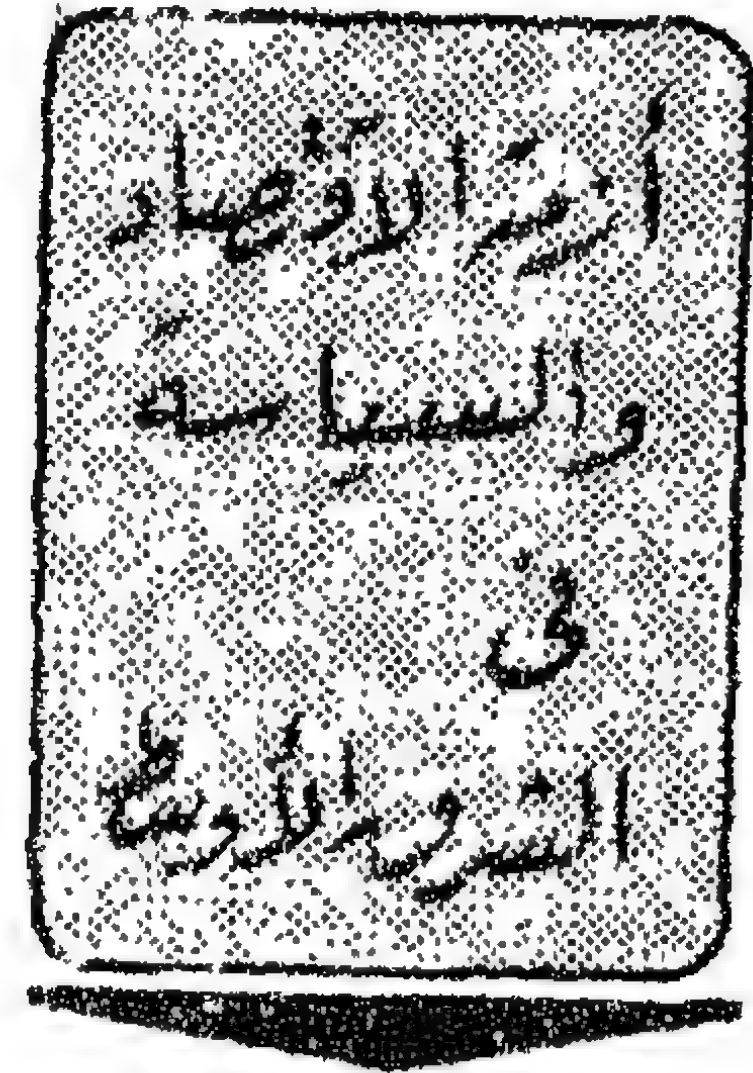 أزمة الاقتصاد
والسياسة
في
الشرق الأوسط